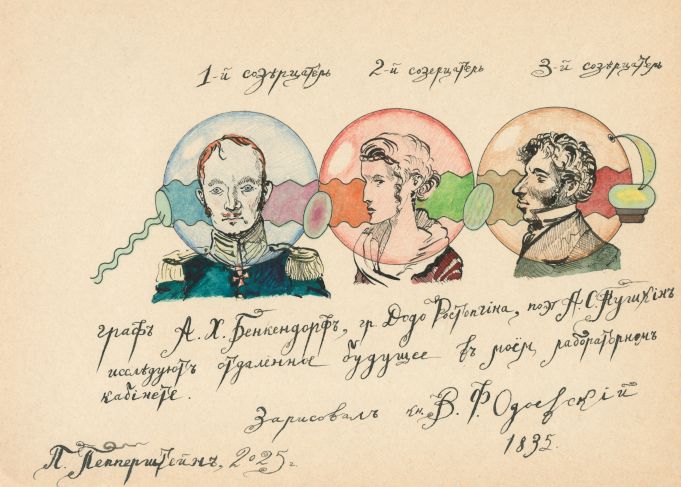 1-й созѣрцатѣрь 2-й созерцатѣрь 3-й созѣрцатѣрь
графъ А. Х. Бенкендорфъ, гр Додо Ростопчина, поэт А. С. Пушкiнъ
изслѣдуютъ отдалённое будущее въ моём лабораторномъ
кабiнете.
Зарисовалъ кн. В. Ф. Одоевскiй
1835.
П. Пепперштейнъ, 2025г.